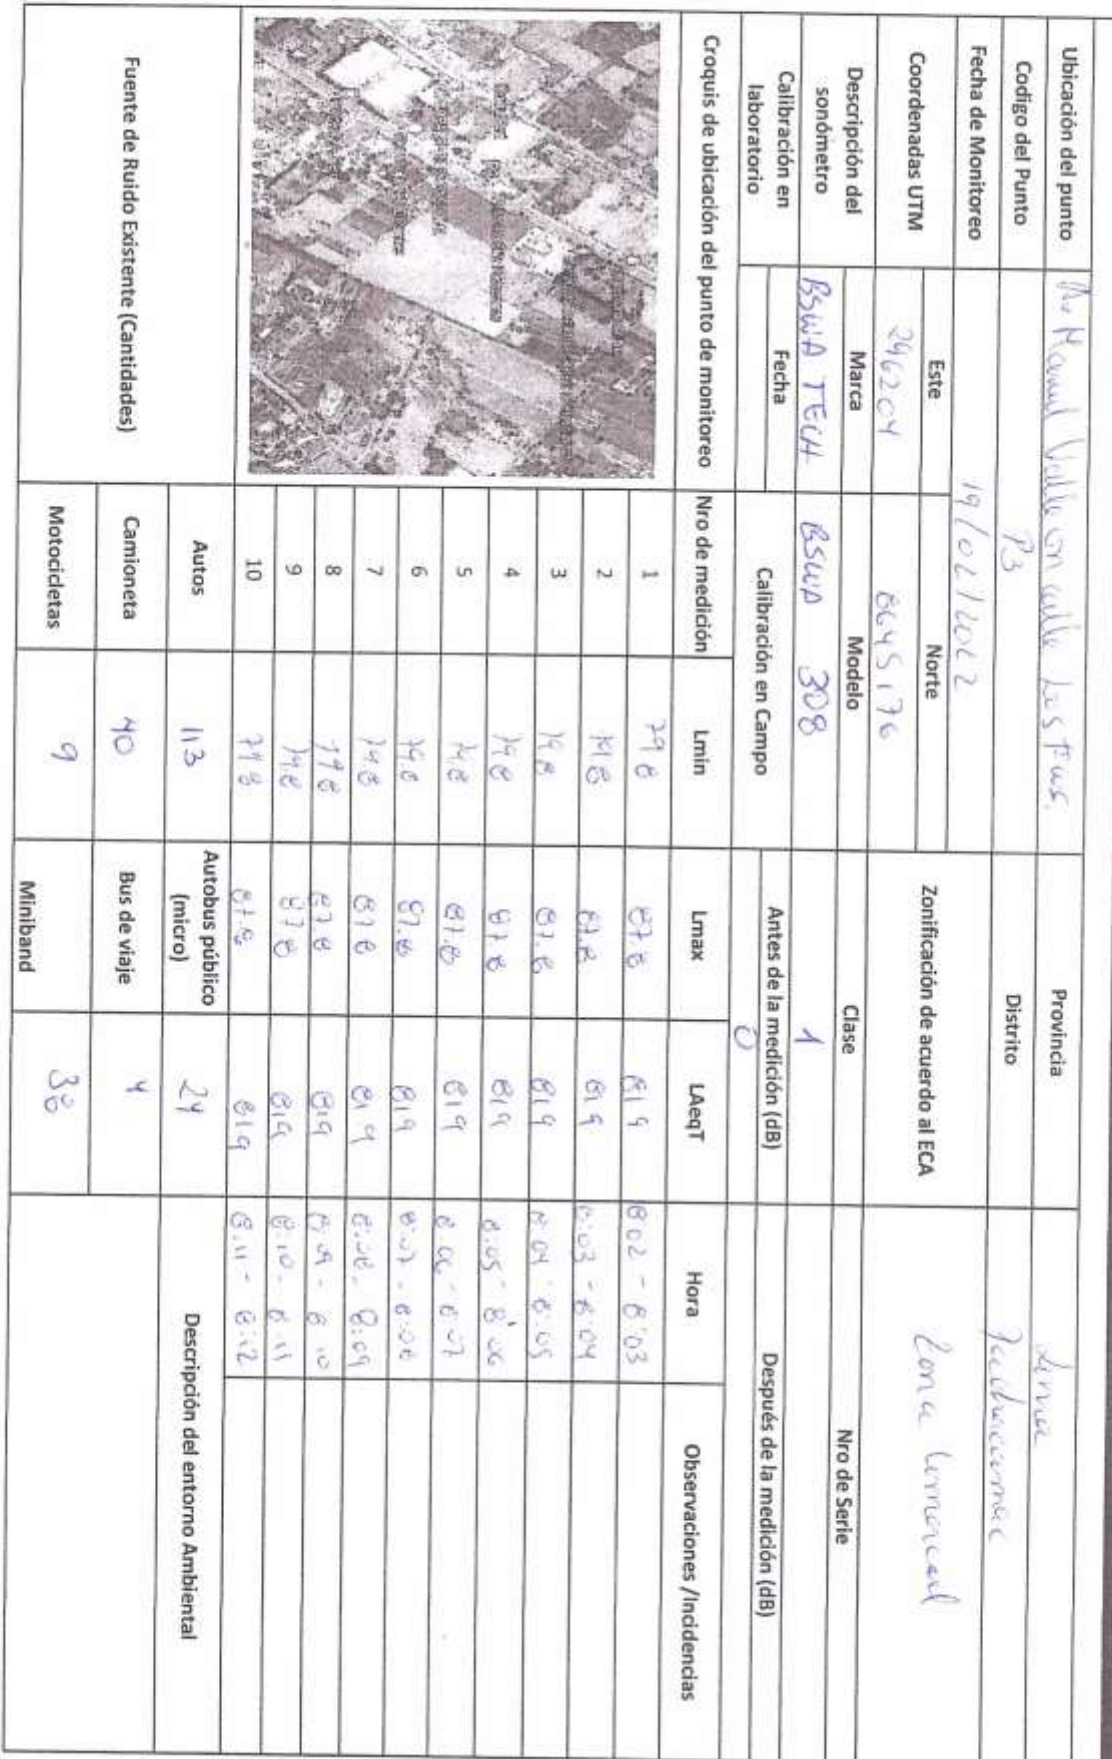 Ubicación del punto Av Manuel Valle con calle Los Provincia Lima
Codigo del Punto P3 Distrito Pachacamac
Fecha de Monitoreo 19/02/2022
Coordenadas UTM Este Norte Zonificación de acuerdo al ECA Zona Comercial
296204 8645176
Descripción del sonómetro Marca Modelo Clase Nro de Serie
BSWA TECH BSWA 308 1
Calibración en laboratorio Fecha Calibración en Campo Antes de la medición (dB) Después de la medición (dB)
0
Croquis de ubicación del punto de monitoreo Nro de medición Lmin Lmax LAeqT Hora Observaciones /Incidencias
1 79.8 87.8 81.9 8:02 - 8:03
2 79.8 87.8 81.9 8:03 - 8:04
3 79.8 87.8 81.9 8:04 - 8:05
4 79.8 87.8 81.9 8:05 - 8:06
5 79.8 87.8 81.9 8:06 - 8:07
6 79.8 87.8 81.9 8:07 - 8:08
7 79.8 87.8 81.9 8:08 - 8:09
8 79.8 87.8 81.9 8:09 - 8:10
9 79.8 87.8 81.9 8:10 - 8:11
10 79.8 87.8 81.9 8:11 - 8:12
Fuente de Ruido Existente (Cantidades) Autos 113 Autobus público (micro) 24 Descripción del entorno Ambiental
Camioneta 40 Bus de viaje 4
Motocicletas 9 Miniband 38